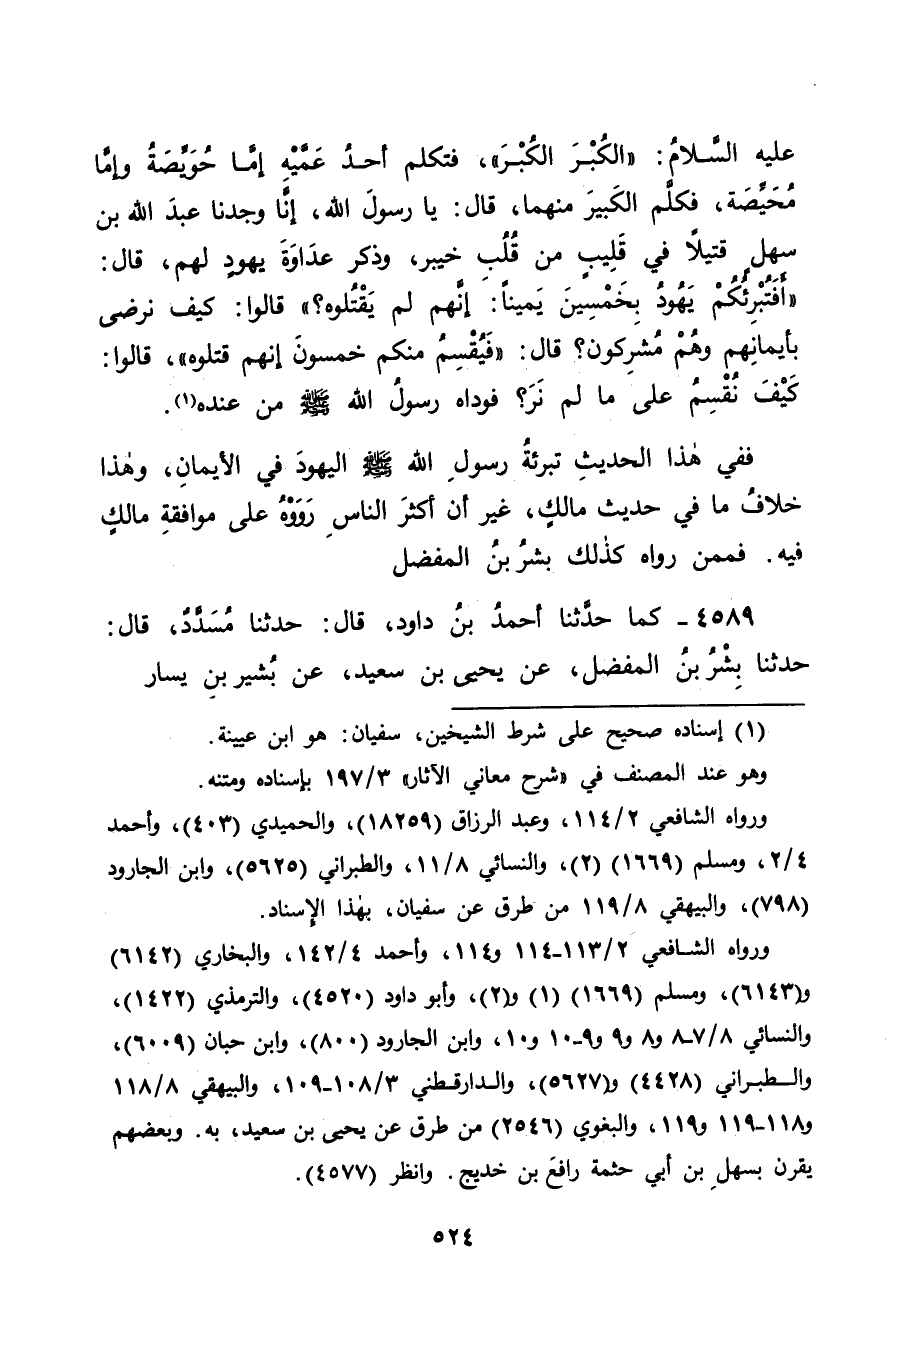 عليه السَّلامُ: «الكُبْرَ الكُبْرَ»، فتكلم أحدُ عَمَّيْهِ إمَّا حُوَيِّصَةُ وإمَّا
مُحَيِّصَة، فكلَّم الكَبيرَ منهما، قال: يا رسولَ الله، إنَّا وجدنا عبدَ الله بن
سهلٍ قتيلاً في قَلِيبٍ من قُلُبِ خيبر، وذكر عدَاوَةَ يهودٍ لهم، قال:
«أَفَتُبْرِئُكُمْ يَهُودُ بِخَمْسِينَ يَميناً: إنَّهم لم يَقْتُلوه؟» قالوا: كيف نرضى
بأيمانِهم وهُمْ مُشركون؟ قال: «فَيُقْسِمُ منكم خمسونَ إنهم قتلوه»، قالوا:
كَيْفَ نُقْسِمُ على ما لم نَرَ؟ فوداه رسولُ الله ﷺ من عنده(١).
ففي هٰذا الحديثِ تبرئةُ رسولِ الله ﷺ اليهودَ في الأيمانِ، وهٰذا
خلافُ ما في حديث مالكٍ، غير أن أكثرَ الناسِ رَوَوْهُ على موافقةِ مالكٍ
فيه. فممن رواه كذٰلك بشرُ بنُ المفضل
٤٥٨٩ - كما حدَّثنا أحمدُ بنُ داود، قال: حدثنا مُسَدَّدٌ، قال:
حدثنا بِشْرُ بنُ المفضل، عن يحيى بن سعيد، عن بُشير بنِ يسار
(١) إسناده صحيح على شرط الشيخين، سفيان: هو ابن عيينة.
وهو عند المصنف في «شرح معاني الآثار» ١٩٧/٣ بإسناده ومتنه.
ورواه الشافعي ١١٤/٢، وعبد الرزاق (١٨٢٥٩)، والحميدي (٤٠٣)، وأحمد
٢/٤، ومسلم (١٦٦٩) (٢)، والنسائي ١١/٨، والطبراني (٥٦٢٥)، وابن الجارود
(٧٩٨)، والبيهقي ١١٩/٨ من طرق عن سفيان، بهٰذا الإسناد.
ورواه الشافعي ١١٣/٢-١١٤ و١١٤، وأحمد ١٤٢/٤، والبخاري (٦١٤٢)
و(٦١٤٣)، ومسلم (١٦٦٩) (١) و(٢)، وأبو داود (٤٥٢٠)، والترمذي (١٤٢٢)،
والنسائي ٧/٨-٨ و٨ و٩ و٩-١٠ و١٠، وابن الجارود (٨٠٠)، وابن حبان (٦٠٠٩)،
والطبراني (٤٤٢٨) و(٥٦٢٧)، والدارقطني ١٠٨/٣-١٠٩، والبيهقي ١١٨/٨
و١١٨-١١٩ و١١٩، والبغوي (٢٥٤٦) من طرق عن يحيى بن سعيد، به. وبعضهم
يقرن بسهلِ بن أبي حثمة رافعَ بن خديج. وانظر (٤٥٧٧).
٥٢٤